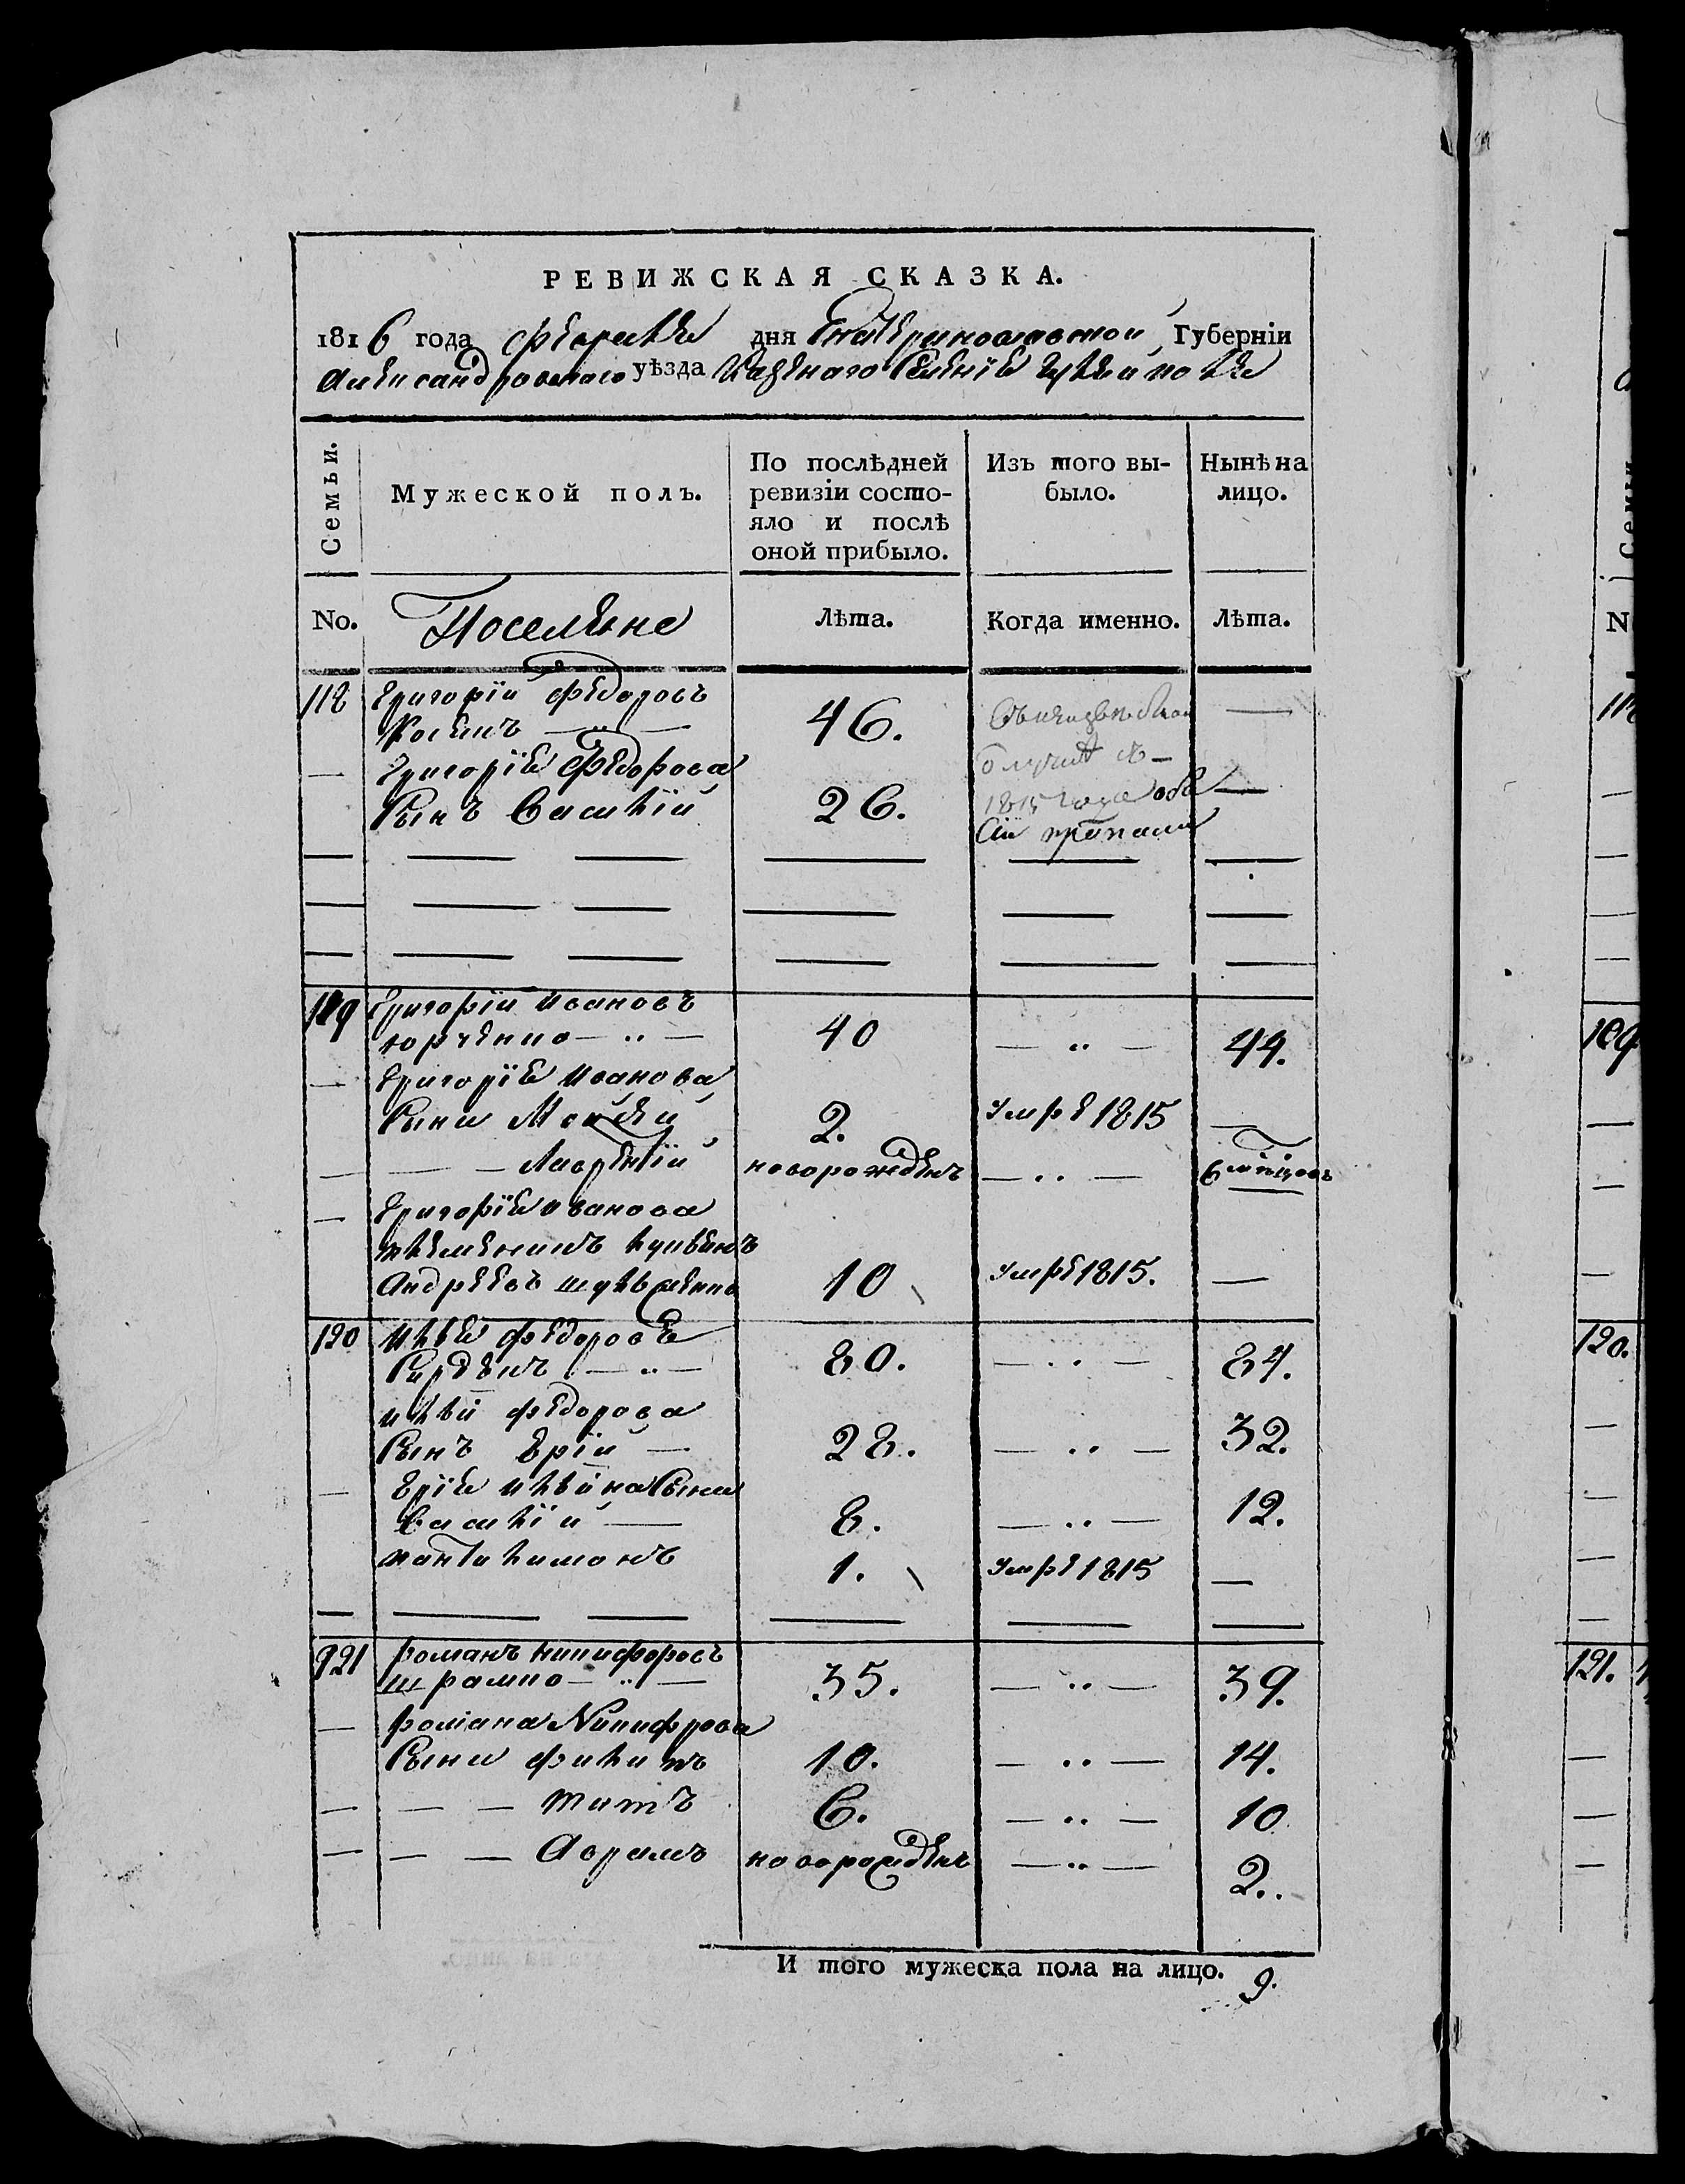 РЕВИЖСКАЯ СКАЗКА.
1816 года февраля дня Екатеринославской Губерніи
Александровского уѣзда Казенаго Селенія
Семьи.
Мужеской полъ.
По послѣдней
ревизіи состо-
яло и послѣ
оной прибыло.
Изъ того вы-
было.
Нынѣ на
лицо.
No.
Поселяне
Лѣта.
Когда именно.
Лѣта.
118 Григорій Федоровъ
46. —
— Григорія Федорова
Сынъ Василій 26. 1815 года оба —
Сіи
119 Григорій Ивановъ
юрченко — „ — 40 — „ — 44.
— Григорія Иванова
Сыни Мойсей 2. Умре 1815 —
— — — Лаврентій новорожденъ — „ — 6 мѣсяцовъ
— Григорія иванова
племеникъ
Андреевъ 10 умре 1815. —
120 Илья Федоровъ
— „ — 80. — „ — 84.
ильи федорова
Сынъ 28. — „ — 32.
— ильина Сыни
Василій — 8. — „ — 12.
пантилимонъ 1. Умре 1815 —
121 романъ никифоровъ
шрамко — „ — 35. — „ — 39.
— романа Никифрова
Сыни филипъ 10. — „ — 14.
— — — титъ 6. — „ — 10
— — — Аврамъ новорожденъ — „ — 2.
И того мужеска пола на лицо. 9.
N
Семьи
118
119
120.
121.